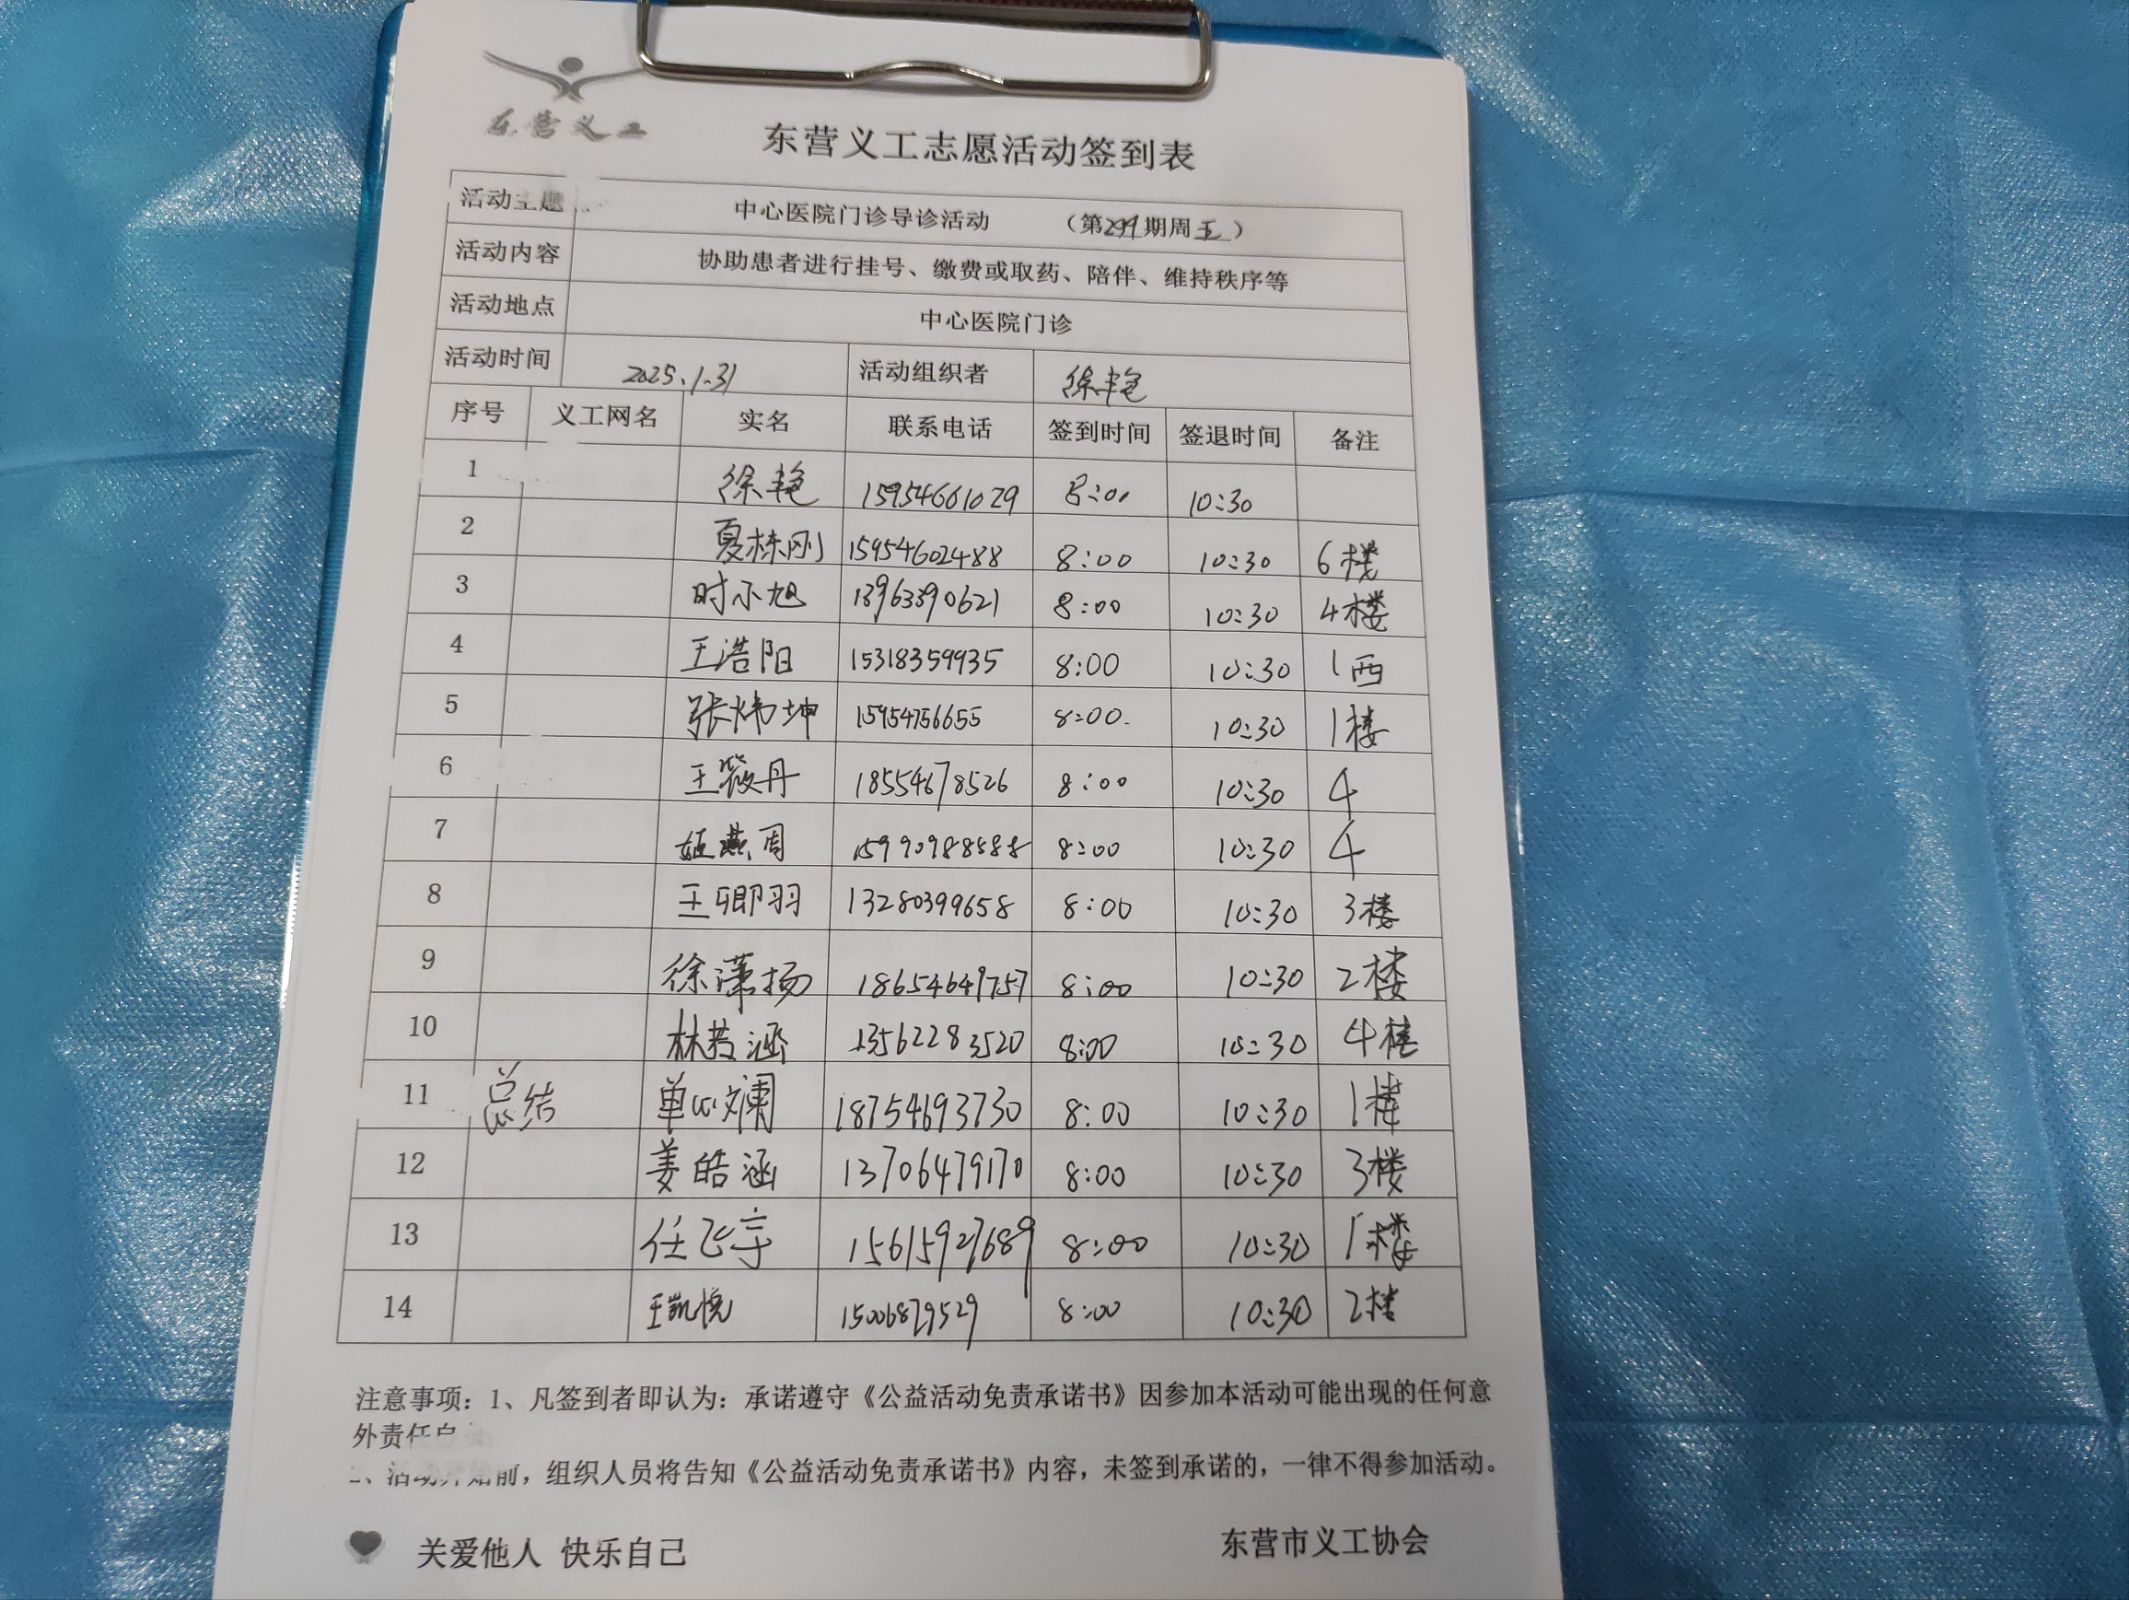 东营义工
东营义工志愿活动签到表
活动主题 中心医院门诊导诊活动 （第299期周五）
活动内容 协助患者进行挂号、缴费或取药、陪伴、维持秩序等
活动地点 中心医院门诊
活动时间 2025.1.31 活动组织者 徐艳
序号 义工网名 实名 联系电话 签到时间 签退时间 备注
1 徐艳 15954661029 8:00 10:30
2 夏栋刚 15954602488 8:00 10:30 6楼
3 时小旭 13963390621 8:00 10:30 4楼
4 王浩阳 15318359935 8:00 10:30 1西
5 张炜坤 15954756655 8:00 10:30 1楼
6 王筱丹 18554678526 8:00 10:30 4
7 姬燕周 15990988588 8:00 10:30 4
8 王卿羽 13280399658 8:00 10:30 3楼
9 徐潇扬 18654649757 8:00 10:30 2楼
10 林若涵 13562283520 8:00 10:30 4楼
11 总结 单心斓 18754693730 8:00 10:30 1楼
12 姜皓涵 13706479170 8:00 10:30 3楼
13 任飞宇 15615927689 8:00 10:30 1楼
14 王凯悦 15006879529 8:00 10:30 2楼
注意事项：1、凡签到者即认为：承诺遵守《公益活动免责承诺书》因参加本活动可能出现的任何意
外责任自
、活动开始前，组织人员将告知《公益活动免责承诺书》内容，未签到承诺的，一律不得参加活动。
关爱他人 快乐自己 东营市义工协会